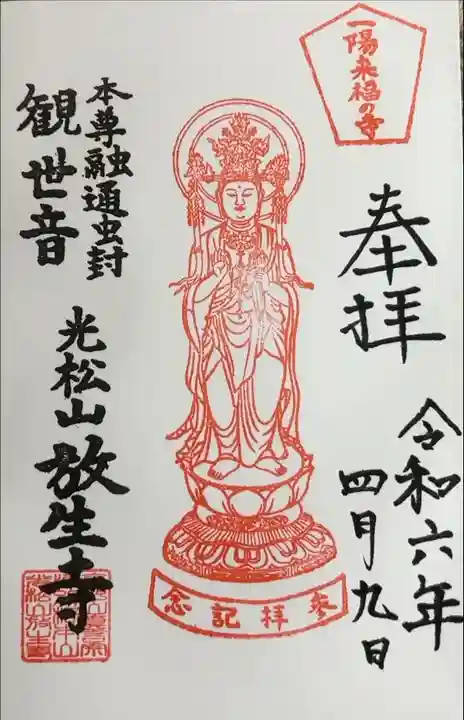 一陽来福の寺
奉拝
令和六年
四月九日
本尊融通虫封
観世音
光松山放生寺
参拝記念